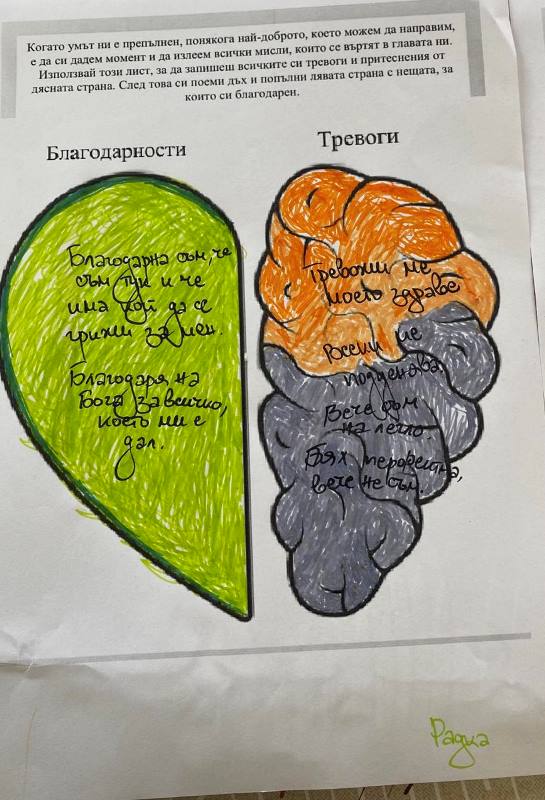 Когато умът ни е препълнен, понякога най-доброто, което можем да направим,
е да си дадем момент и да излеем всички мисли, които се въртят в главата ни.
Използвай този лист, за да запишеш всичките си тревоги и притеснения от
дясната страна. След това си поеми дъх и попълни лявата страна с нещата, за
които си благодарен.
Благодарности
Благодарна съм, че
съм тук и че
има кой да се
грижи за мен.
Благодаря на
Бога за всичко,
което ми е
дал.
Тревоги
Тревожи ме
моето здраве
Всеки ме
Вече съм
на легло.
Бях перфектна,
вече не съм.
Радка